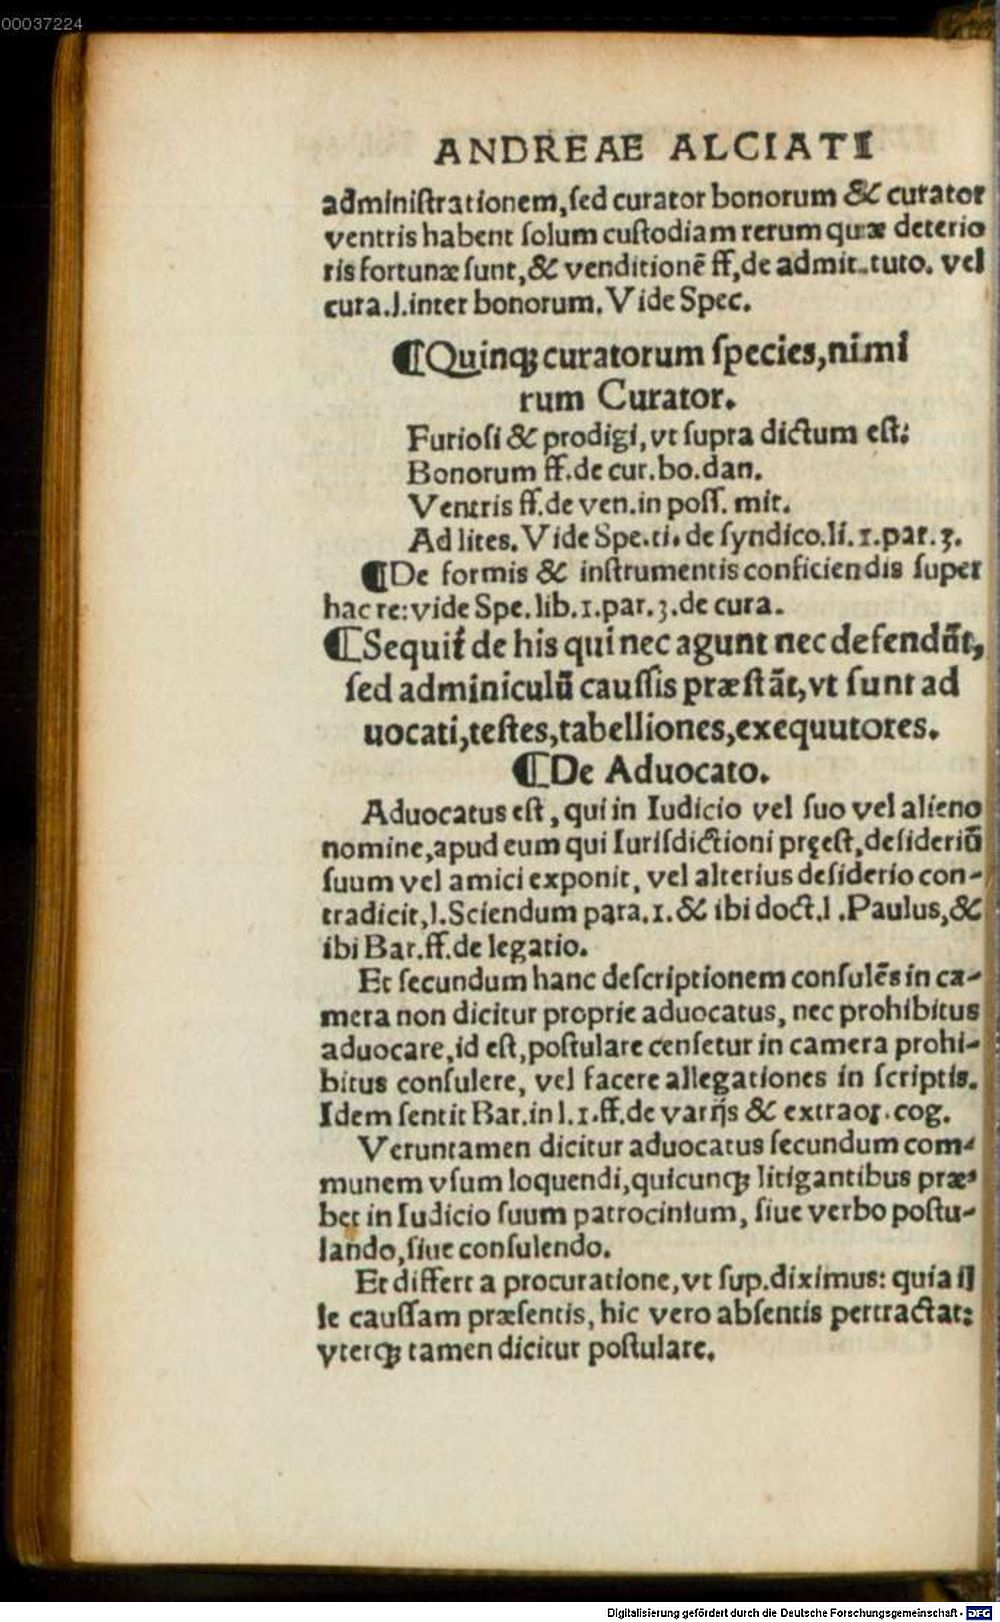 00037224
ANDREAE ALCIATI
adminiſtrationem, ſed curator bonorum & curator
ventris habent ſolum cuſtodiam rerum quæ deterio
ris fortunæ ſunt, & venditionẽ ff, de admit. tuto. vel
cura. l. inter bonorum. Vide Spec.
¶Quinqꝫ curatorum ſpecies, nimi
rum Curator.
Furioſi & prodigi, vt ſupra dictum eſt:
Bonorum ff. de cur. bo. dan.
Ventris ff. de ven. in poſſ. mit.
Ad lites. Vide Spe. ti. de ſyndico. li. 1. par. 3.
¶De formis & inſtrumentis conficiendis ſuper
hac re: vide Spe. lib. 1. par. 3. de cura.
¶Sequit᷑ de his qui nec agunt nec defendũt,
ſed adminiculũ cauſſis præſtãt, vt ſunt ad
uocati, teſtes, tabelliones, exequutores.
¶De Aduocato.
Aduocatus eſt, qui in Iudicio vel ſuo vel alieno
nomine, apud eum qui Iuriſdictioni pręeſt, deſideriũ
ſuum vel amici exponit, vel alterius deſiderio con-
tradicit, l. Sciendum para. 1. & ibi doct. l. Paulus, &
ibi Bar. ff. de legatio.
Et ſecundum hanc deſcriptionem conſulẽs in ca-
mera non dicitur proprie aduocatus, nec prohibitus
aduocare, id eſt, poſtulare cenſetur in camera prohi-
bitus conſulere, vel facere allegationes in ſcriptis.
Idem ſentit Bar. in l. 1. ff. de varijs & extraoꝛ. cog.
Veruntamen dicitur aduocatus ſecundum com-
munem vſum loquendi, quicunqꝫ litigantibus præ-
bet in Iudicio ſuum patrocinium, ſiue verbo poſtu-
lando, ſiue conſulendo.
Et differt a procuratione, vt ſup. diximus: quia il
le cauſſam præſentis, hic vero abſentis pertractat:
vterqꝫ tamen dicitur poſtulare.
Digitalisierung gefördert durch die Deutsche Forschungsgemeinschaft - DFG